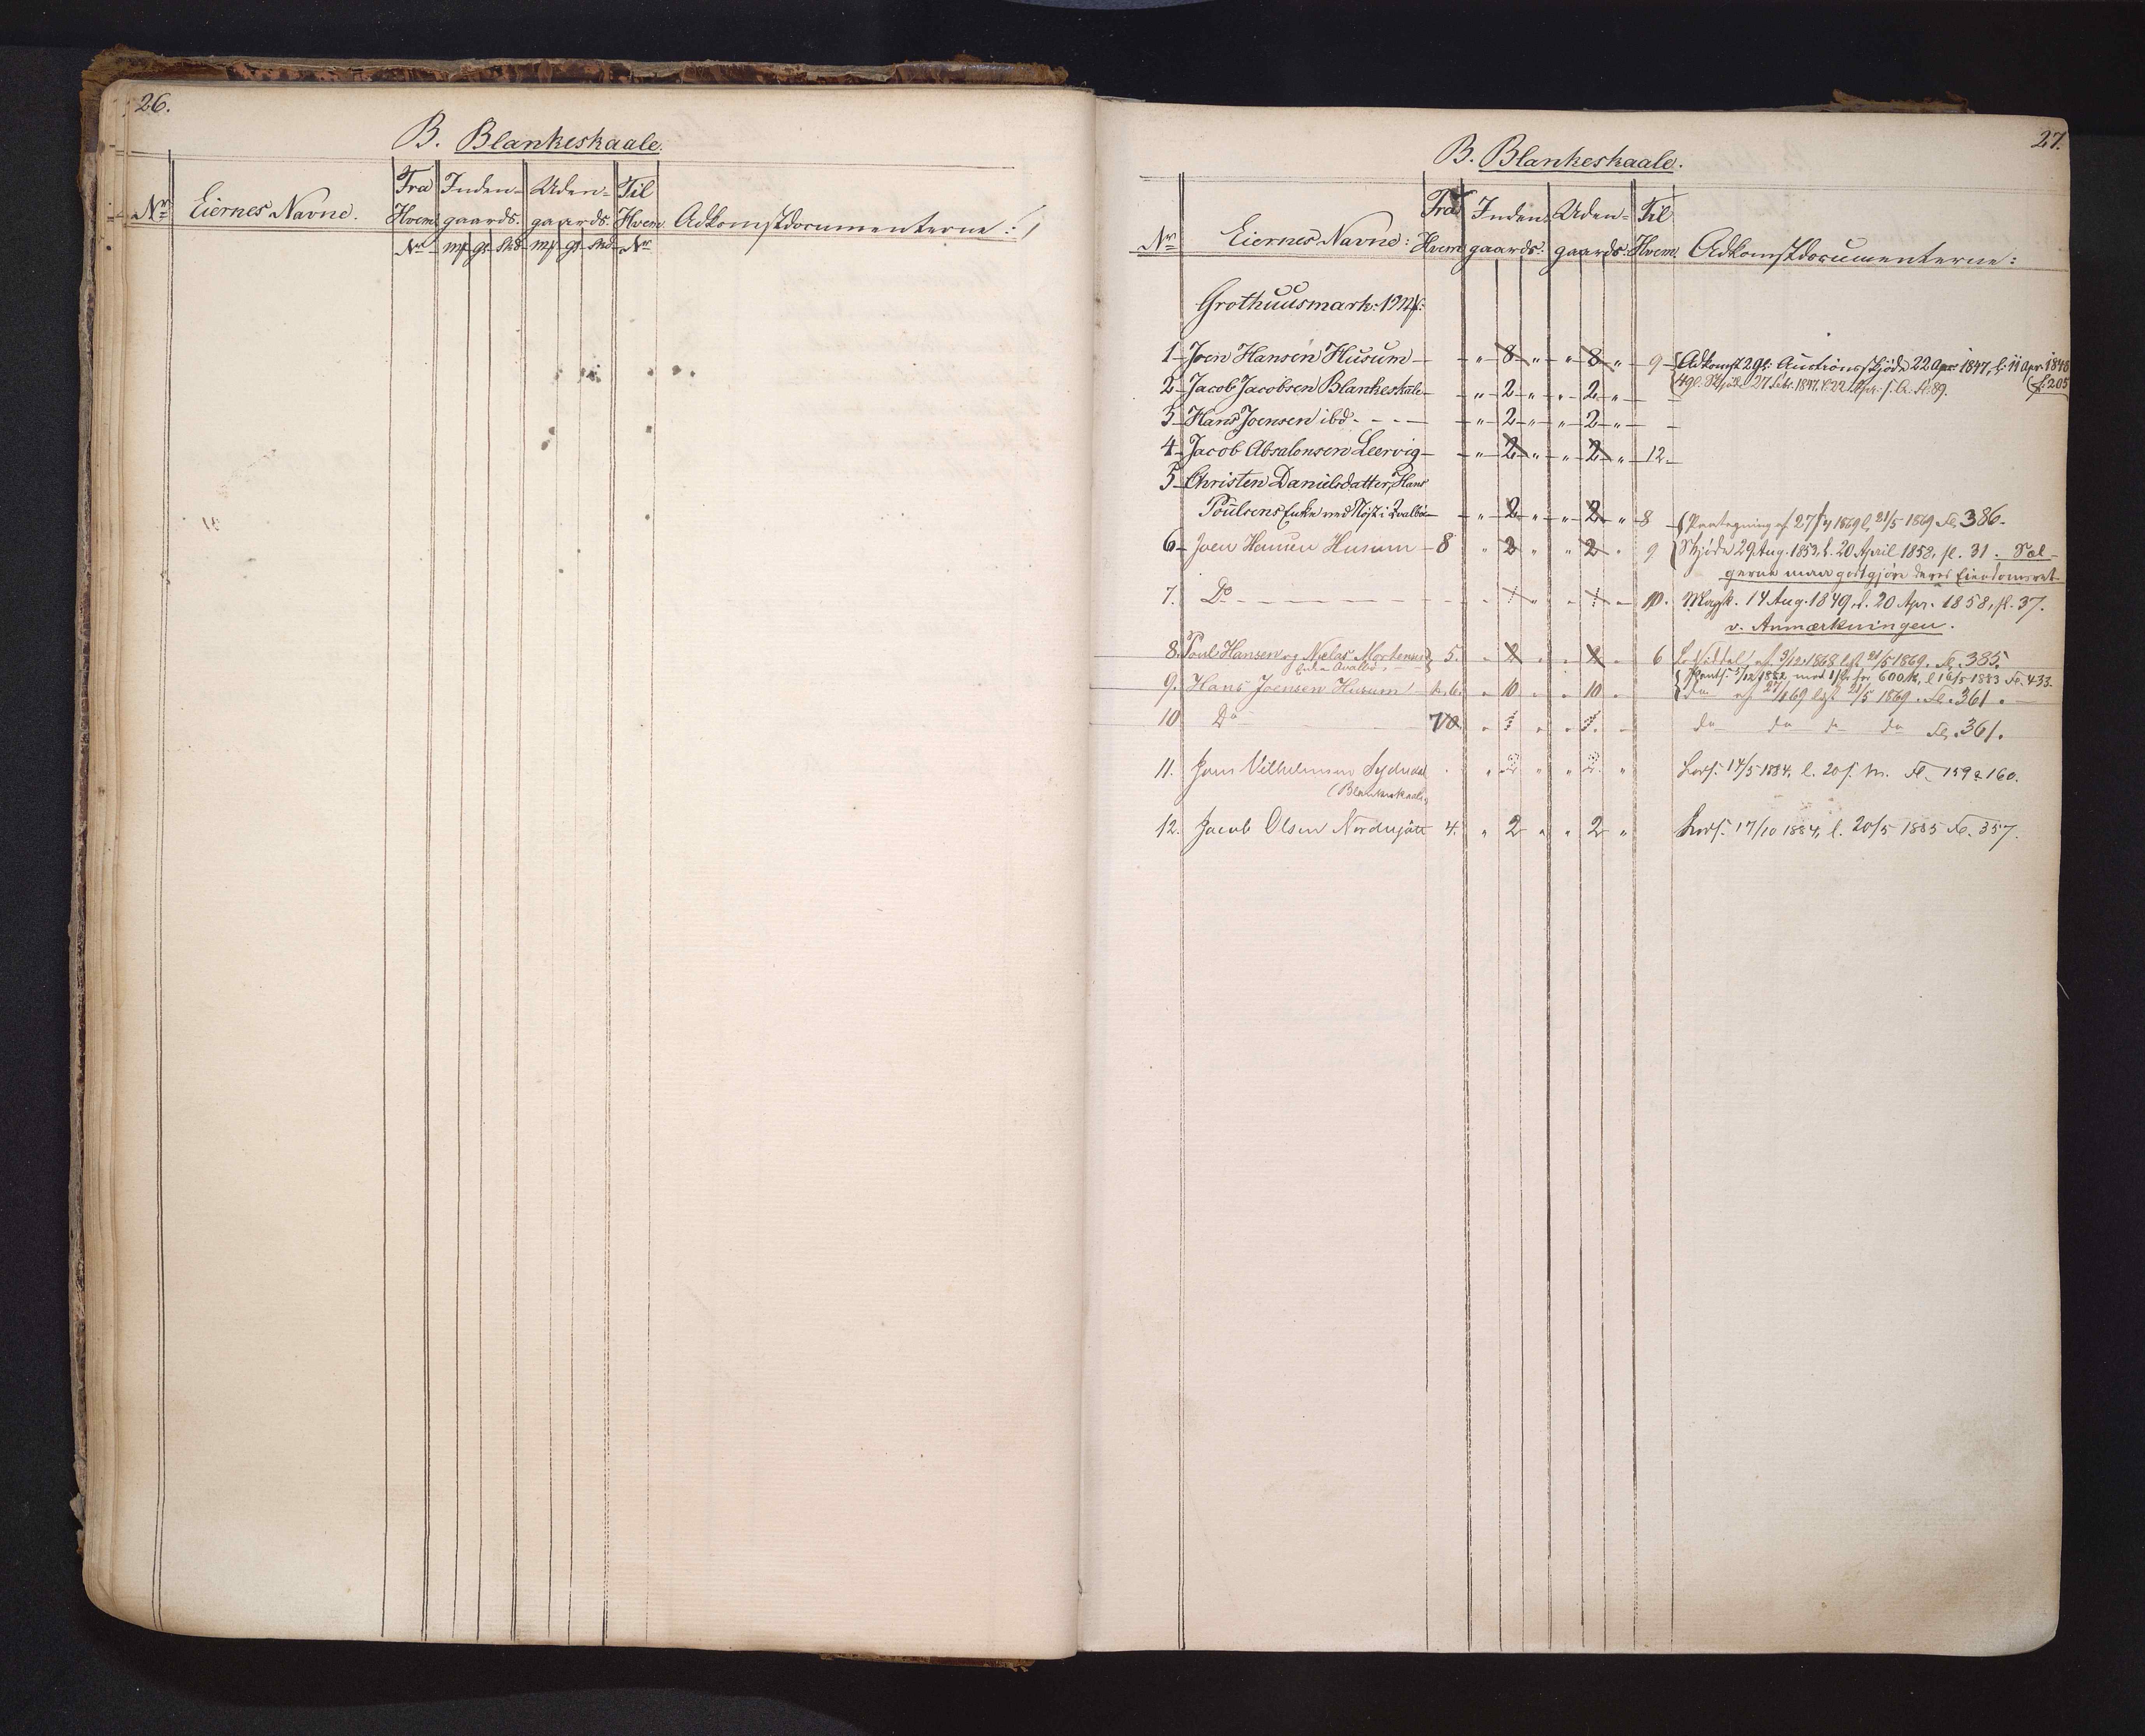 26.
B. Blankeskaale.
Nr Eiernes Navne. Fra Hvem Inden- gaards. Uden- gaards. Til Hvem Adkomstdocumenterne:
Nr mk gl skd mk gl skd Nr
27.
B. Blankeskaale.
Nr Eiernes Navne: Fra Hvem Inden- gaards. Uden- gaards. Til Hvem. Adkomstdocumenterne:
Grothuusmark:
1 Joen Hansen Husum " 8 " " 8 " 9 Adkomst 2 gl: Auctionsskjøde 22 Apr: 1847, l: 11 Apr: 1848 f: 205
2 Jacob Jacobsen Blankeskaale " 2 " " 2 " 4 gl. Skjøde 27 Febr. 1847, l. 22 Apr. Fl. 89.
3 Hans Joensen ibd " 2 " " 2 "
4 Jacob Absalonsen Leervig " 2 " " 2 " 12
5 Christen Danielsdatter, Hans
Poulsens Enke ved Nøst i Qvalbø " 2 " " 2 " 8 Paategning af 1869 l. 21/5 1869 Fl. 386.
6 Joen Hansen Husum 8 " 2 " " 2 " 9 Skjøde 29 Aug. 1853, l. 20 April 1858, fl. 31. Sæl-
gerne maa godtgjøre deres Eiendomsret
7. Do 1 " " 1 10. Magk. 14 Aug. 1849, l. 20 Apr. 1858, fl. 37.
v. Anmærkningen.
8. Poul Hansen og Niclas Mortensen 5. " 2 " " 2 " 6 1868 lgst 21/5 1869. Fl. 385.
Qvalbø
Pants. 5/12 1882, med 1 Pr. for 600 K, l 16/5 1883 Fo. 433.
9. Hans Joensen Husum 1. 6. " 10 " " 10 " do af 69 lgst 21/5 1869. Fl. 361.
10 Do 7 " 1 " " 1 " do do do Fl. 361.
11. Jens Vilhelmsen Sydredal " 2 " " 2 " 14/5 1884, l. 20 s. M. Fl. 159 & 160.
(Blankeskaale)
12. Jacob Olsen 4. " 2 " " 2 " 17/10 1884, l. 20/5 1885 Fo. 357.